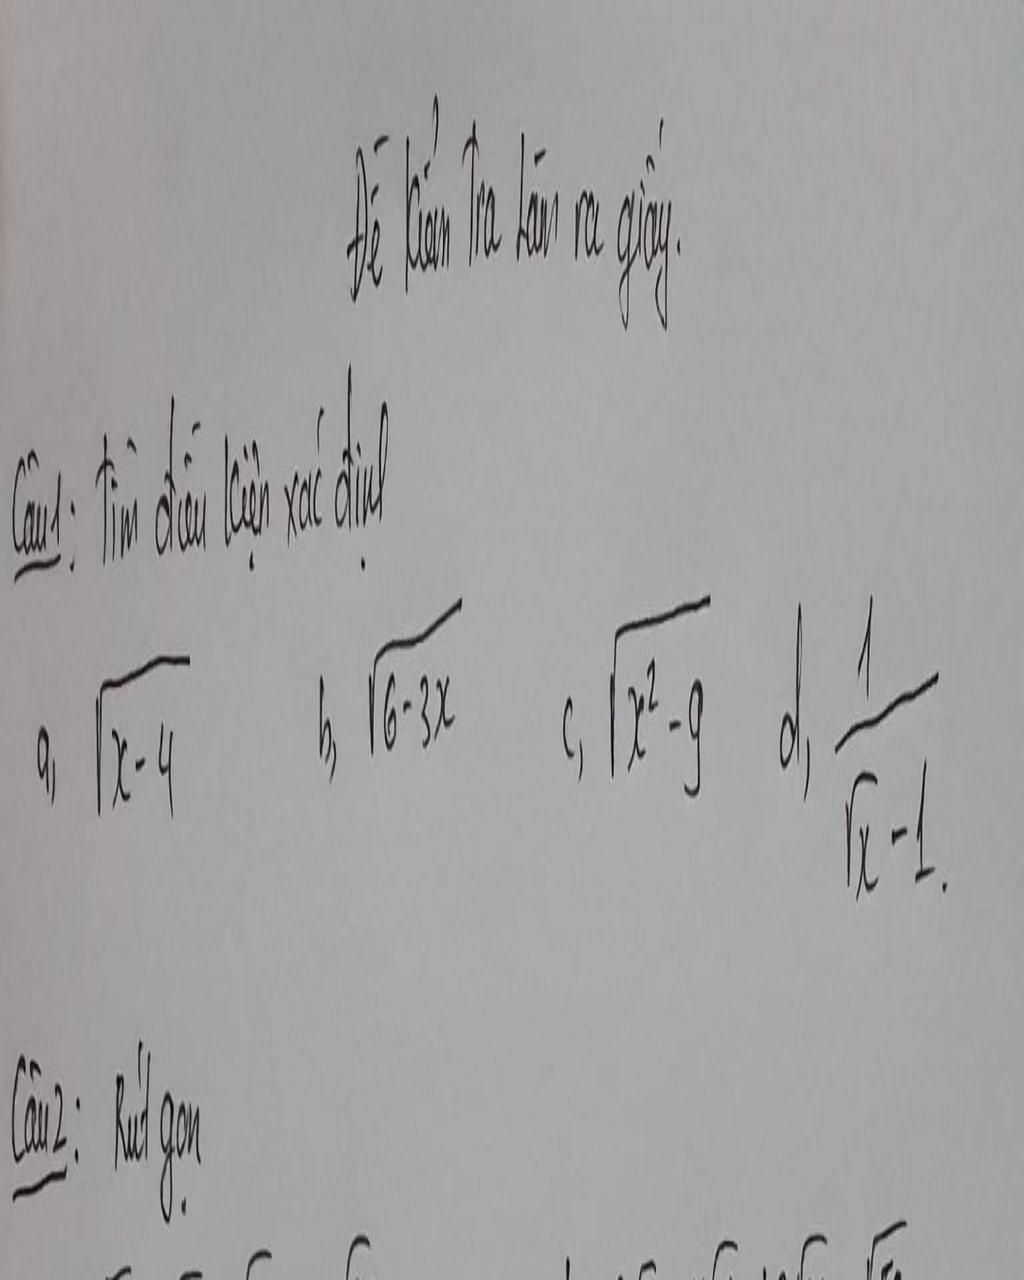 Đề kiểm tra làm ra giấy.
Câu 1: Tìm điều kiện xác định
a, √(x-4) b, √(6-3x) c, √(x²-9) d, 1/(√x-1).
Câu 2: Rút gọn